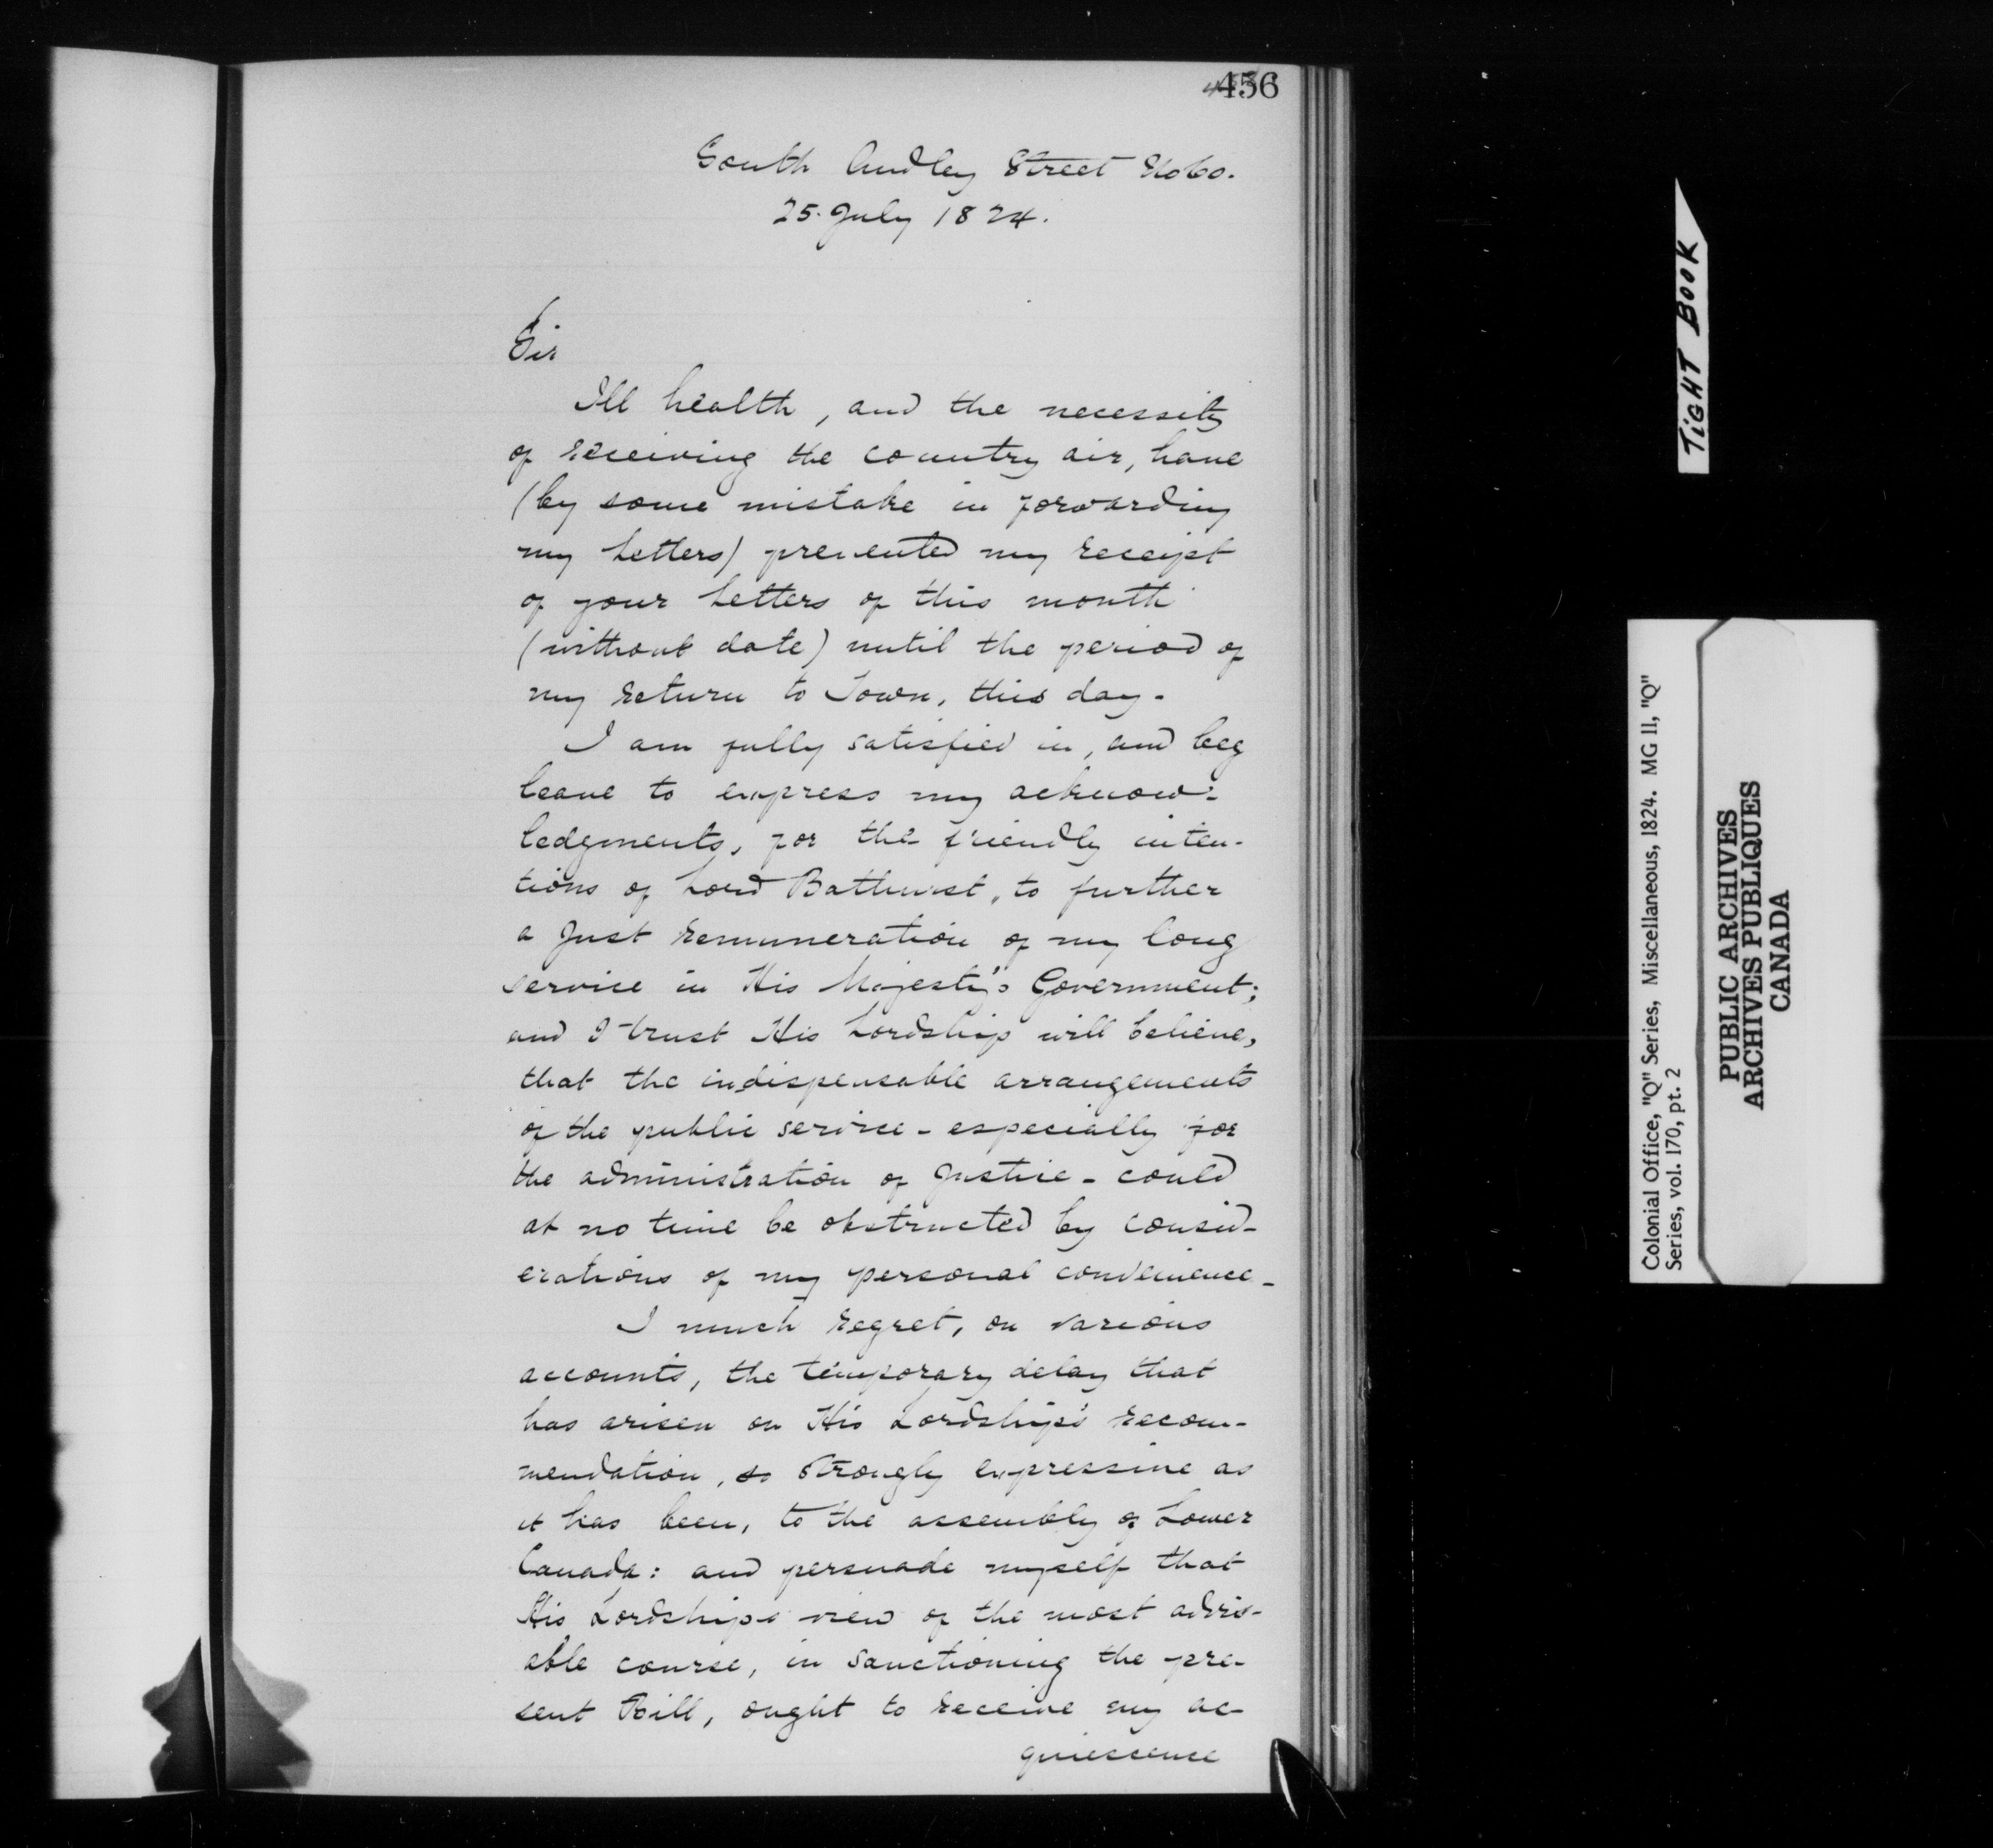 456
South Audley Street No 60.
25. July 1824.
Sir
Ill health, and the necessity
of receiving the country air, have
(by some mistake in forwarding
my Letters) prevented my receipt
of your Letters of this month
(without date) until the period of
my return to Town, this day.
I am fully satisfied in, and beg
leave to express my acknow-
ledgments, for the friendly inten-
tions of Lord Bathurst, to further
a just remuneration of my long
service in His Majesty's Government;
and I trust His Lordship will believe,
that the indispensable arrangements
of the public service - especially for
the administration of Justice - could
at no time be obstructed by consid-
erations of my personal convenience -
I much regret, on various
accounts, the temporary delay that
has arisen on His Lordship's recom-
mendation, so strongly expressive as
it has been, to the assembly of Lower
Canada: and persuade myself that
His Lordships view of the most advis-
able course, in sanctioning the pre-
sent Bill, ought to receive my ac-
quiescence
TIGHT BOOK
Colonial Office, "Q" Series, Miscellaneous, 1824. MG 11, "Q"
Series, vol. 170, pt. 2
PUBLIC ARCHIVES
ARCHIVES PUBLIQUES
CANADA